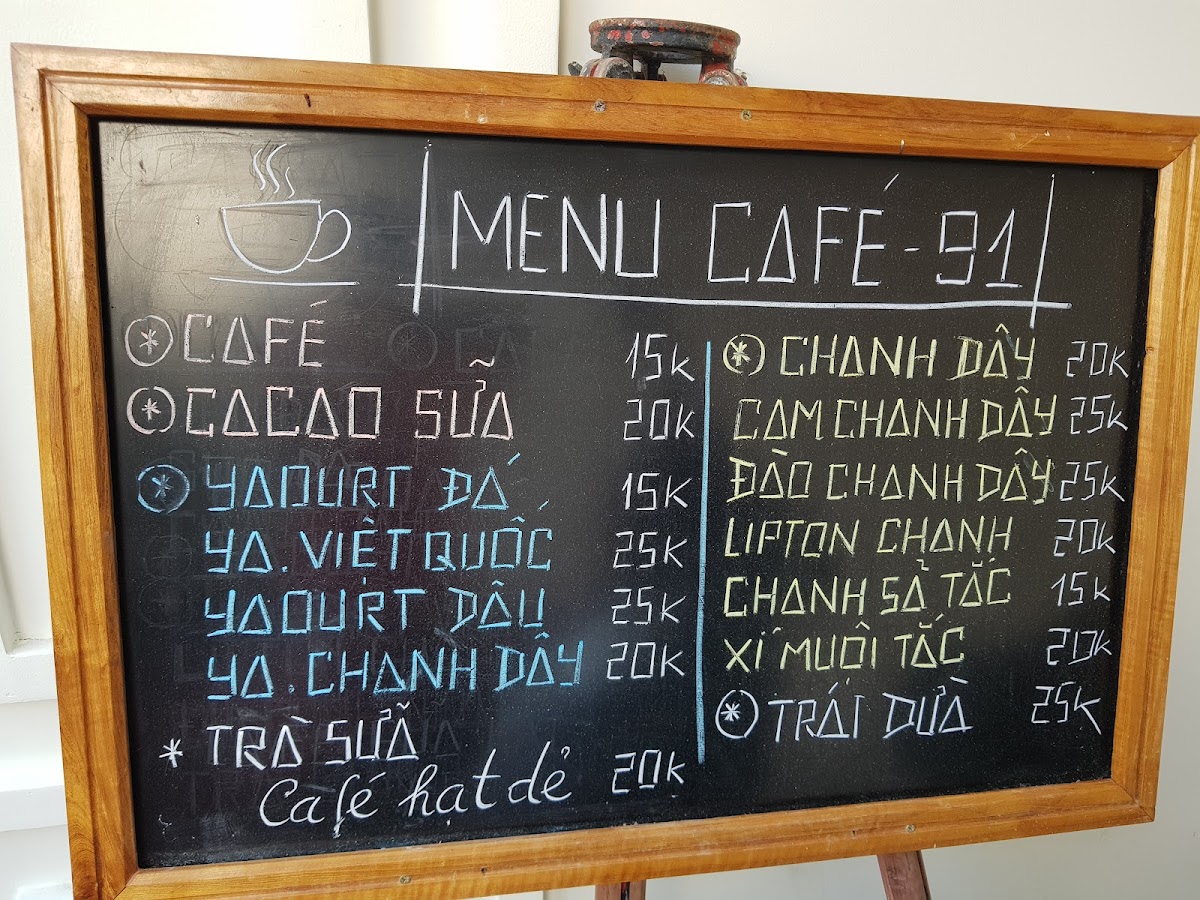 MENU CAFÉ - 91
CAFÉ 15K
CACAO SỮA 20K
YAOURT ĐÁ 15K
YA. VIỆT QUỐC 25K
YAOURT DÂU 25K
YA. CHANH DÂY 20K
* TRÀ SỮA
Café hạt dẻ 20K
CHANH DÂY 20K
CAM CHANH DÂY 25K
ĐÀO CHANH DÂY 25K
LIPTON CHANH 20K
CHANH SẢ TẮC 15K
XÍ MUỘI TẮC 20K
TRÁI DỪA 25K